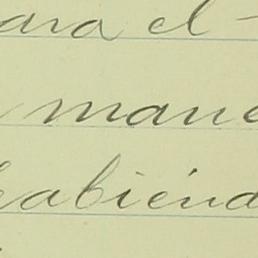 para el
mane
habiend